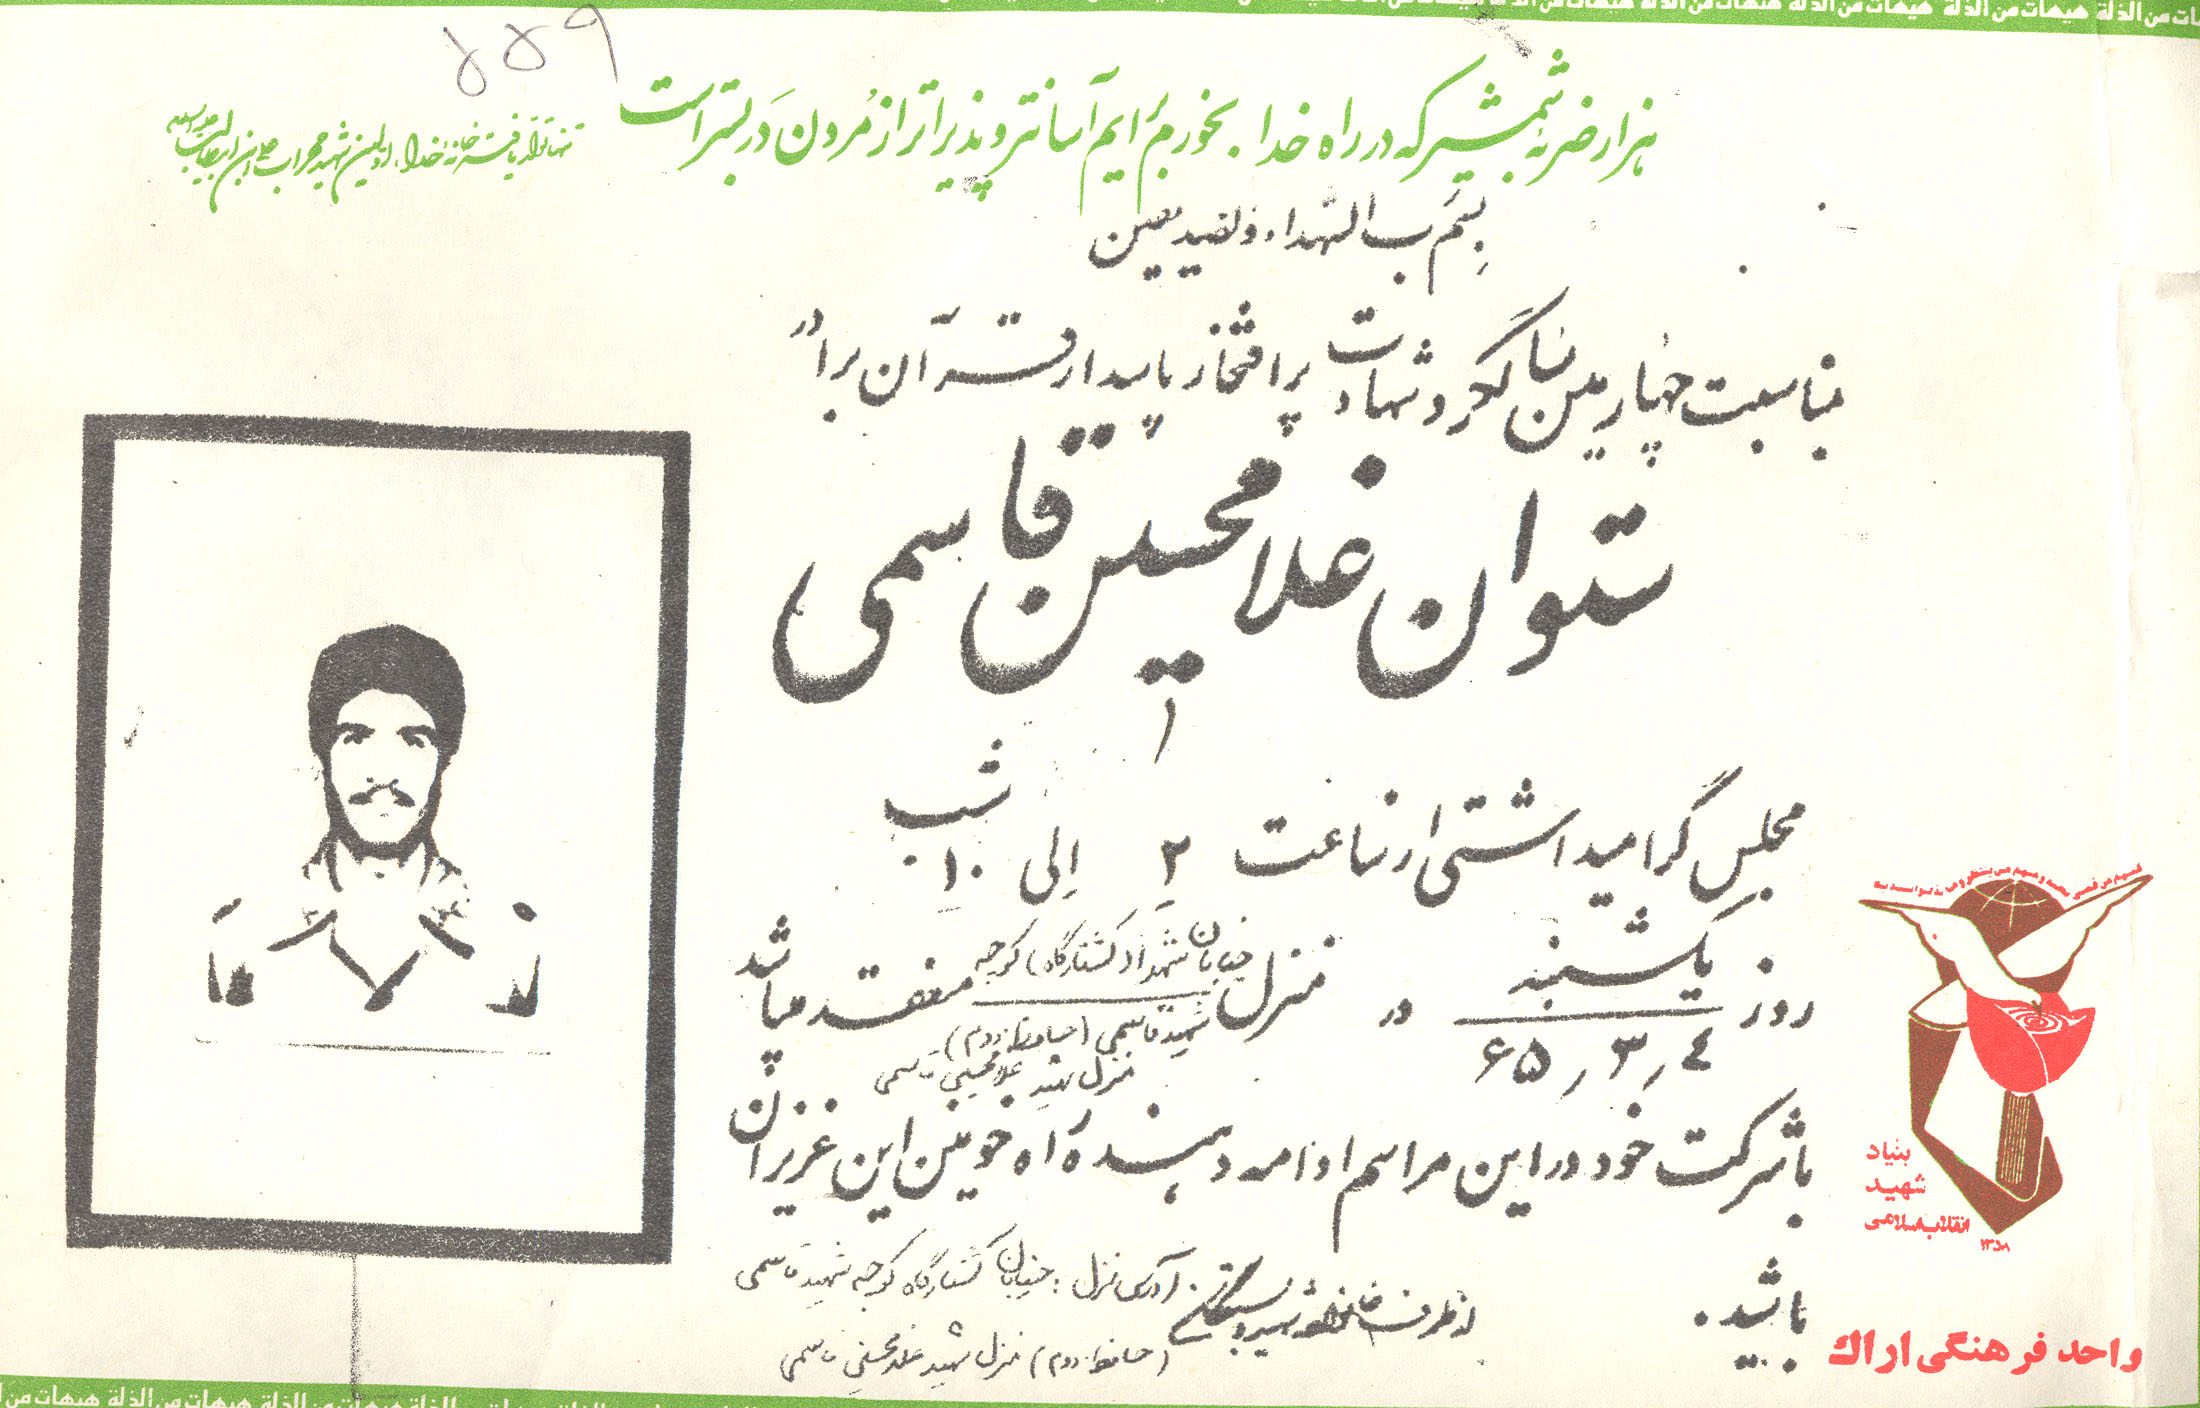 هیهات من الذلة هیهات من الذلة هیهات من الذلة هیهات من الذلة
۵۵۹
هزار ضربهٔ شمشیر که در راه خدا بخورم برایم آسانتر و پذیراتر از مردن در بستر است
تنها تولد یافته خانهٔ خدا، اولین شهید محراب علی ابن ابیطالب علیه السلام
بسم رب الشهداء والصدیقین
بمناسبت چهارمین سالگرد شهادت پر افتخار پاسدار قرآن برادر
ستوان غلامحسین قاسمی
مجلس گرامیداشتی از ساعت ۲ الی ۱۰ شب
روز یکشنبه ۶۵٫۳٫۴ در منزل خیابان شهدا (کشتارگاه) کوچه شهید قاسمی (حافظ دوم) منعقد میباشد
منزل شهید غلامحسین قاسمی
با شرکت خود در این مراسم ادامه دهنده راه خونین این عزیزان
باشید.
از طرف خانواده شهید و بستگان
آدرس منزل: خیابان کشتارگاه کوچه شهید قاسمی
(حافظ دوم) منزل شهید غلامحسین قاسمی
بنیاد
شهید
انقلاب اسلامی
۱۳۵۸
واحد فرهنگی اراک
هیهات من الذلة هیهات من الذلة هیهات من الذلة